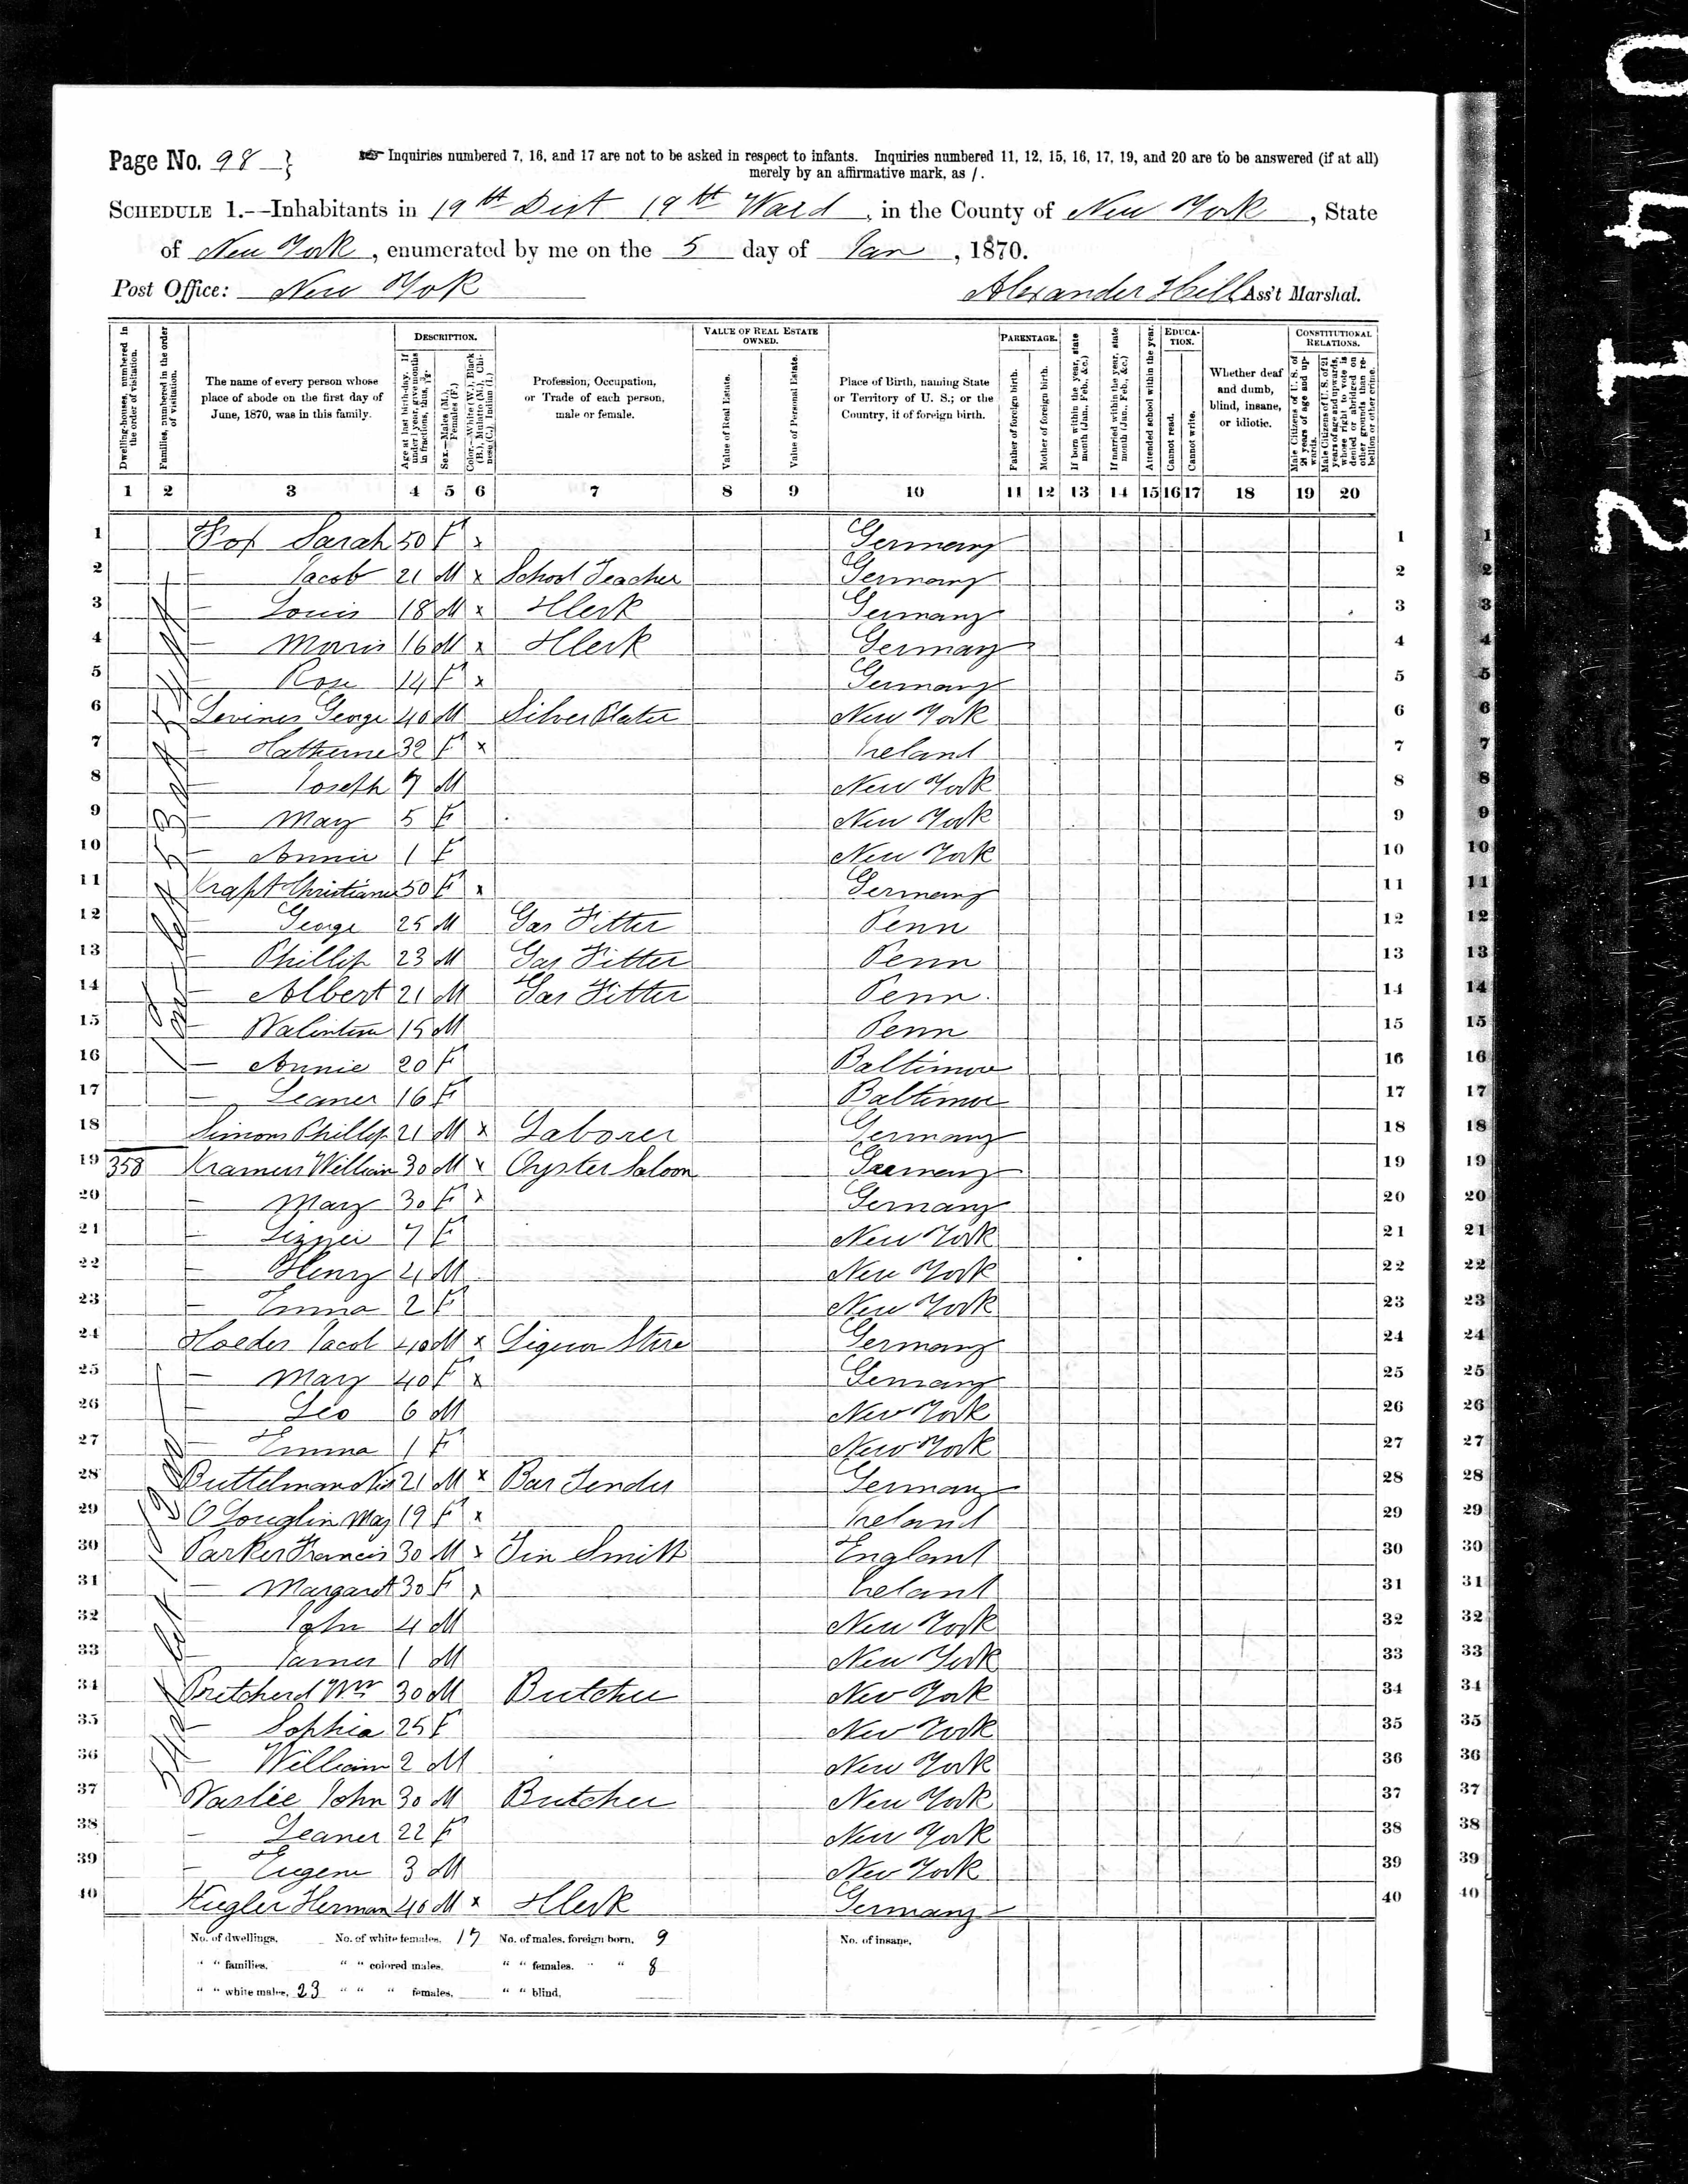 Page No. 98 }
Inquiries numbered 7, 16, and 17 are not to be asked in respect to infants. Inquiries numbered 11, 12, 15, 16, 17, 19, and 20 are to be answered (if at all)
merely by an affirmative mark, as /.
SCHEDULE 1.--Inhabitants in 19th Dist 19th Ward, in the County of New York, State
of New York, enumerated by me on the 5 day of Jan, 1870.
Post Office: New Yok Alexander Hill Ass't Marshal.
Dwelling-houses, numbered in the order of visitation.
Families, numbered in the order of visitation.
The name of every person whose place of abode on the first day of June, 1870, was in this family.
DESCRIPTION.
Age at last birth-day. If under 1 year, give months in fractions, thus,
Sex.—Males (M.), Females (F.)
Color.—White (W.), Black (B.), Mulatto (M.), Chinese (C.), Indian (I.)
Profession, Occupation, or Trade of each person, male or female.
VALUE OF REAL ESTATE OWNED.
Value of Real Estate.
Value of Personal Estate.
Place of Birth, naming State or Territory of U. S.; or the Country, if of foreign birth.
PARENTAGE.
Father of foreign birth.
Mother of foreign birth.
If born within the year, state month (Jan., Feb., &c.)
If married within the year, state month (Jan., Feb., &c.)
Attended school within the year.
EDUCATION.
Cannot read.
Cannot write.
Whether deaf and dumb, blind, insane, or idiotic.
CONSTITUTIONAL RELATIONS.
Male Citizens of U. S. of 21 years of age and upwards.
Male Citizens of U. S. of 21 years of age and upwards, whose right to vote is denied or abridged on other grounds than rebellion or other crime.
1 2 3 4 5 6 7 8 9 10 11 12 13 14 15 16 17 18 19 20
1 Fox Sarah 50 F x Germany 1
2 — Jacob 21 M x School Teacher Germany 2
3 — Louis 18 M x Clerk Germany 3
4 — Morris 16 M x Clerk Germany 4
5 — Rose 14 F x Germany 5
6 Levines George 40 M Silver Plater New York 6
7 — Katherine 32 F x Ireland 7
8 — Joseph 7 M New York 8
9 — Mary 5 F New York 9
10 — Annie 1 F New York 10
11 Kraft Christiana 50 F x Germany 11
12 — George 25 M Gas Fitter Penn 12
13 — Phillip 23 M Gas Fitter Penn 13
14 — Albert 21 M Gas Fitter Penn. 14
15 — Valintine 15 M Penn 15
16 — Annie 20 F Baltimore 16
17 — Leaner 16 F Baltimore 17
18 Simons Phillip 21 M x Laborer Germany 18
19 358 Kramers William 30 M x Oyster Saloon Germany 19
20 — Mary 30 F x Germany 20
21 — Lizzie 7 F New York 21
22 — Henry 4 M New York 22
23 — Emma 2 F New York 23
24 Hoeder Jacob 40 M x Liquor Store Germany 24
25 — Mary 40 F x Germany 25
26 — Leo 6 M New York 26
27 — Emma 1 F New York 27
28 Buttelman 21 M x Bar Tender Germany 28
29 O Loughlin Mary 19 F x Ireland 29
30 Parker Francis 30 M x Tin Smith England 30
31 — Margaret 30 F x Ireland 31
32 — John 4 M New York 32
33 — James 1 M New York 33
34 Pritcherd Wm 30 M Butcher New York 34
35 — Sophia 25 F New York 35
36 — William 2 M New York 36
37 Naslie John 30 M Butcher New York 37
38 — Leaner 22 F New York 38
39 — Eugene 3 M New York 39
40 Kugler Herman 40 M x Clerk Germany 40
No. of dwellings, No. of white females, 17 No. of males, foreign born, 9 No. of insane,
" " families, " " colored males, " " females, " " 8
" " white males, 23 " " " females, " " blind,